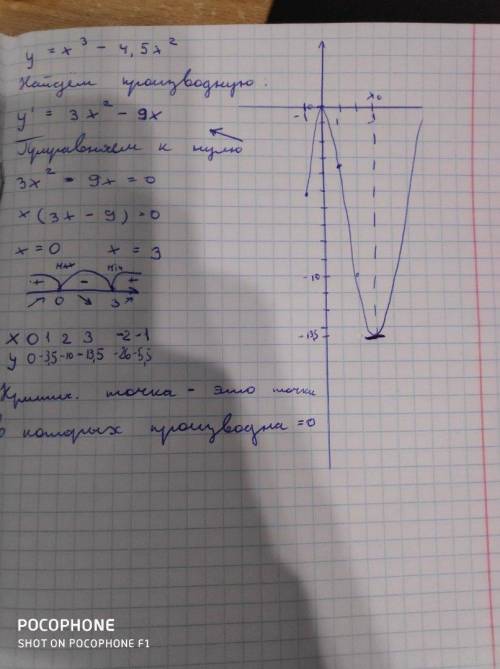 y = x³ - 4,5x²
Найдем производную.
y' = 3x² - 9x
Приравняем к нулю
3x² - 9x = 0
x(3x - 9) = 0
x = 0 x = 3
max min
+ - +
0 3
x 0 1 2 3 -2 -1
y 0 -3,5 -10 -13,5 -26 -5,5
Критич. точка - это точки
в которых производна = 0
x₀
-1 0 1 3
-10
-13,5
POCOPHONE
SHOT ON POCOPHONE F1